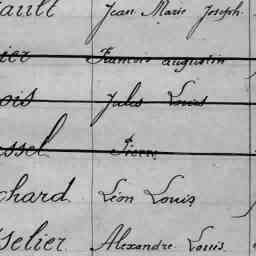 ault Jean Marie Joseph
ier Francois augustin
ois Jules Louis
ssel Pierre
chard Léon Louis
selier Alexandre Louis